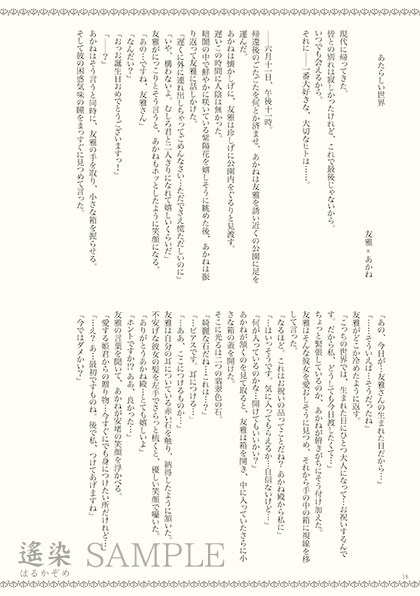 あたらしい世界
友雅×あかね
現代に帰ってきた。
皆との別れは寂しかったけれど、これで最後じゃないから。
いつでも会えるから。
それに―一番大好きな、大切なヒトは……。
――六月十一日、午後十二時。
帰還後のごたごたを何とか済ませ、あかねは友雅を誘い近くの公園に足を
運んだ。
あかねは懐かしげに、友雅は珍しげに公園内をぐるりと見渡す。
遅いこの時間に人影は無かった。
暗闇の中で鮮やかに咲いている紫陽花を嬉しそうに眺めた後、あかねは振
り返って友雅に話しかけた。
「遅くに外に連れ出しちゃってごめんなさい…ただでさえ慌ただしいのに」
「いや、構わないよ。むしろ君と二人きりになれて嬉しいくらいだ」
友雅がにっこりとそう言うと、あかねもホッとしたように笑顔になる。
「あの…ですね、友雅さん」
「なんだい？」
「おっお誕生日おめでとうございますっ！」
「――え？」
あかねはそう言うと同時に、友雅の手を取り、小さな箱を握らせる。
そして彼の困惑気味の瞳をまっすぐに見つめて言った。
「あの、今日が…友雅さんの生まれた日だから…」
「……そういえば…そうだったね」
友雅がどこか冷めたように返す。
「こっちの世界では、生まれた日にひとつ大人になって…お祝いするんで
す。だから私、どうしても今日渡したくて…」
ちょっと緊張しているのか、あかねが俯きがちにそう付け加えた。
友雅はそんな彼女を愛おしそうに見つめ、それから手の中の箱に視線を移
して言った。
「なるほど、これはお祝いの品ってことだね？あかね殿から私に」
「…はいっそうです。気に入ってもらえるか…自信ないけど…」
「何が入っているのかな…開けてもいいかい？」
あかねが頷くのを見て取ると、友雅は箱を開き、中に入っていたさらに小
さな箱の蓋を開けた。
そこに光るは二つの翡翠色の石。
「綺麗な石だね…これは…？」
「…ピアスです。耳につける…」
「…ああ、ここにつけるものか…」
友雅は自分の耳についている赤い石を触り、納得したように頷いた。
不安げな彼女の髪を左手でさらっと梳くと、優しい笑顔で囁いた。
「ありがとうあかね殿…とても嬉しいよ」
「ホントですか!?ああ、良かった…！」
友雅の言葉を聞いて、あかねが安堵の笑顔を浮かべる。
「愛する姫君からの贈り物…今すぐにでも身につけたい所だけれど…」
「…え？あ…最初ですものね、後で私、つけてあげますね」
「今ではダメかい？」
遙染 SAMPLE
はるかぞめ
18